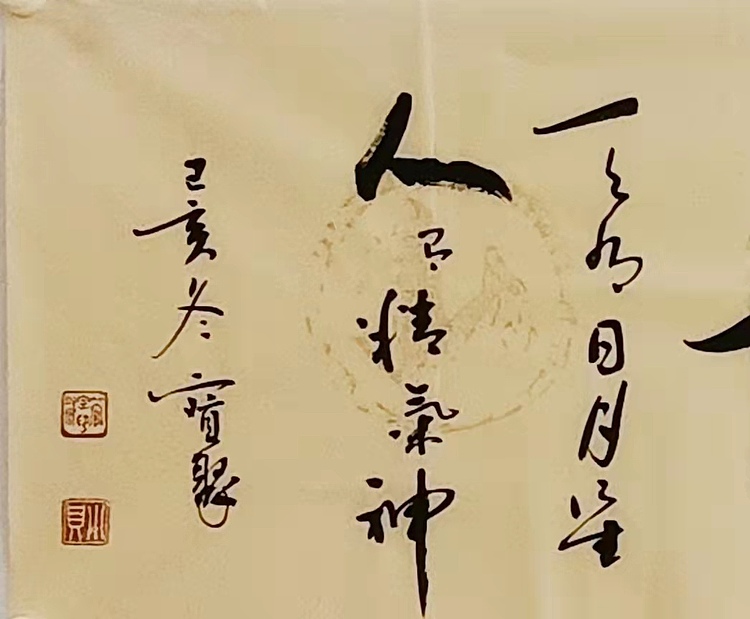 天有日月星
人有精氣神
己亥冬